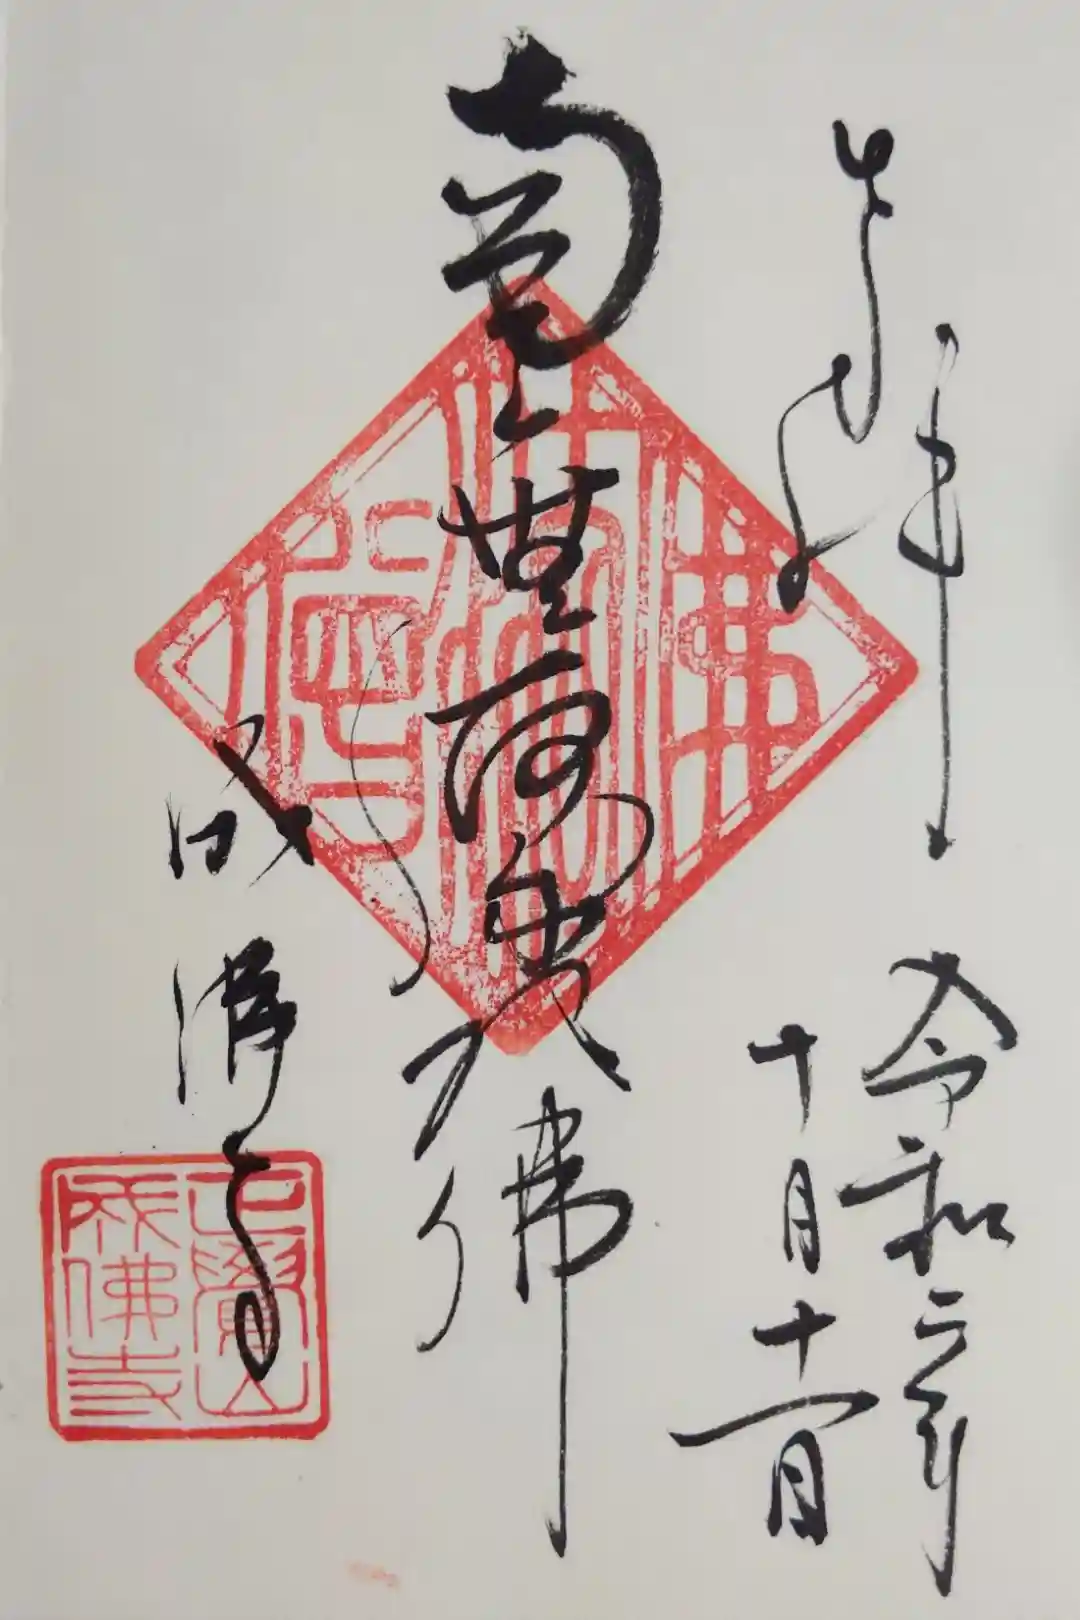 奉拝
令和二年
十月十一日
南無阿彌陀佛
成佛寺
正覺山
成佛寺